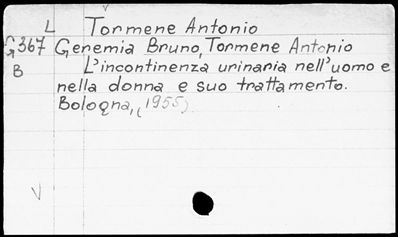 L Tormene Antonio
G367 Geremia Bruno, Tormene Antonio
B L'incontinenza urinaria nell'uomo e
nella donna e suo trattamento.
Bologna, (1955)